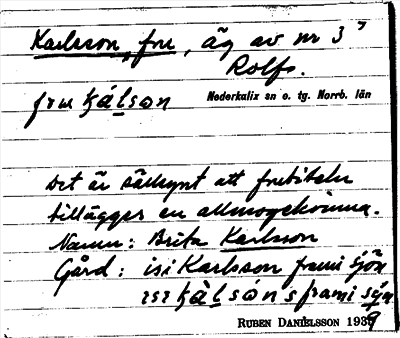 Karlsson, fru, äg av nr 3
Rolfs.
Nederkalix sn o. tg. Norrb. län
fru kálson
Det är sällsynt att frutiteln
tillägges en allmogekvinna.
Namn: Brita Karlsson
Gård: isi Karlsson frami sjön
ısı kàlsóns frami sýn
RUBEN DANIELSSON 1939